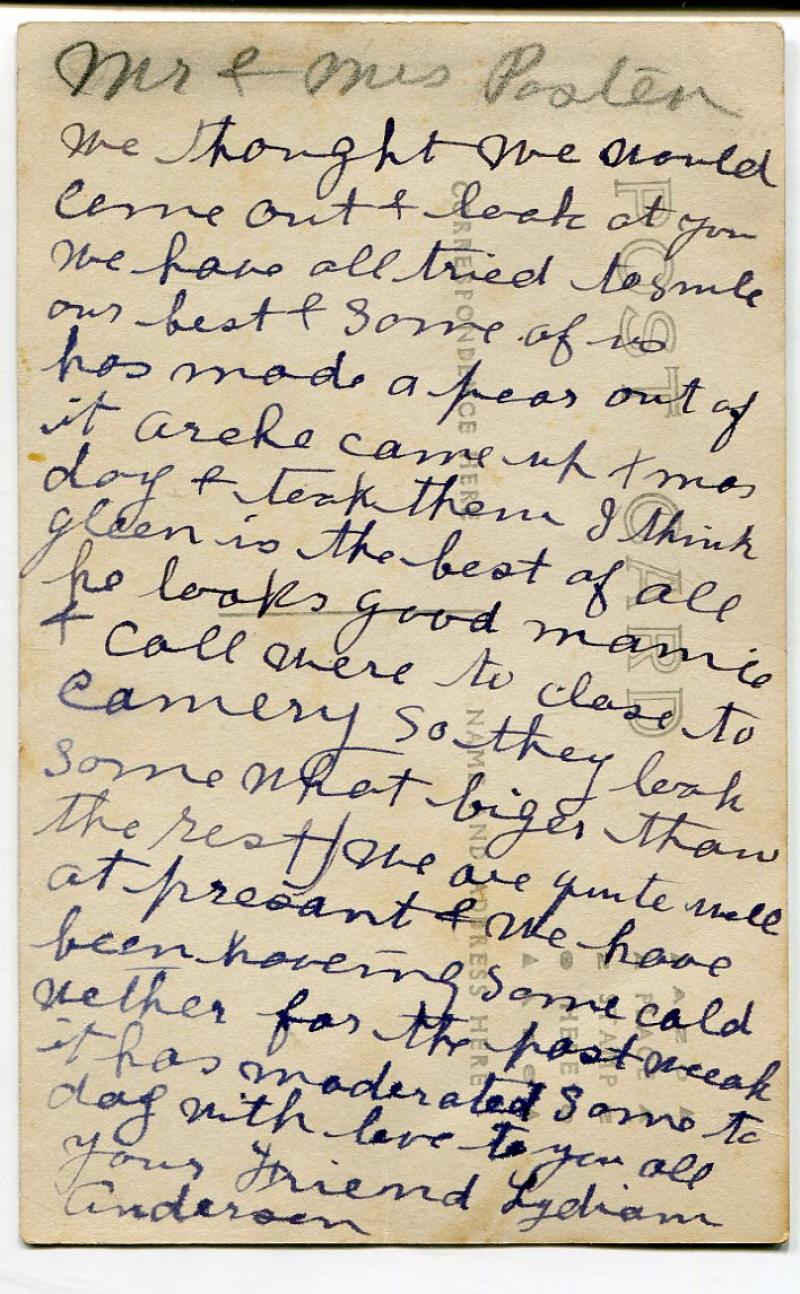 Mr & Mrs Posten
We thought We would
come out & look at you
We have all tried to smile
our best & Some of us
has made a poor out of
it Arche came up Xmas
day & took them I think
gleen is the best of all
he looks good mamie
& Coll were to close to
Camery So they look
Some What biger than
the rest We are quite well
at presant & We have
been haveing Some cold
Wether for the past weeak
it has moderated Some to
day With love to you all
your Friend Lydiam
Anderson
POST CARD
CORRESPONDENCE HERE
NAME AND ADDRESS HERE
PLACE
STAMP
HERE